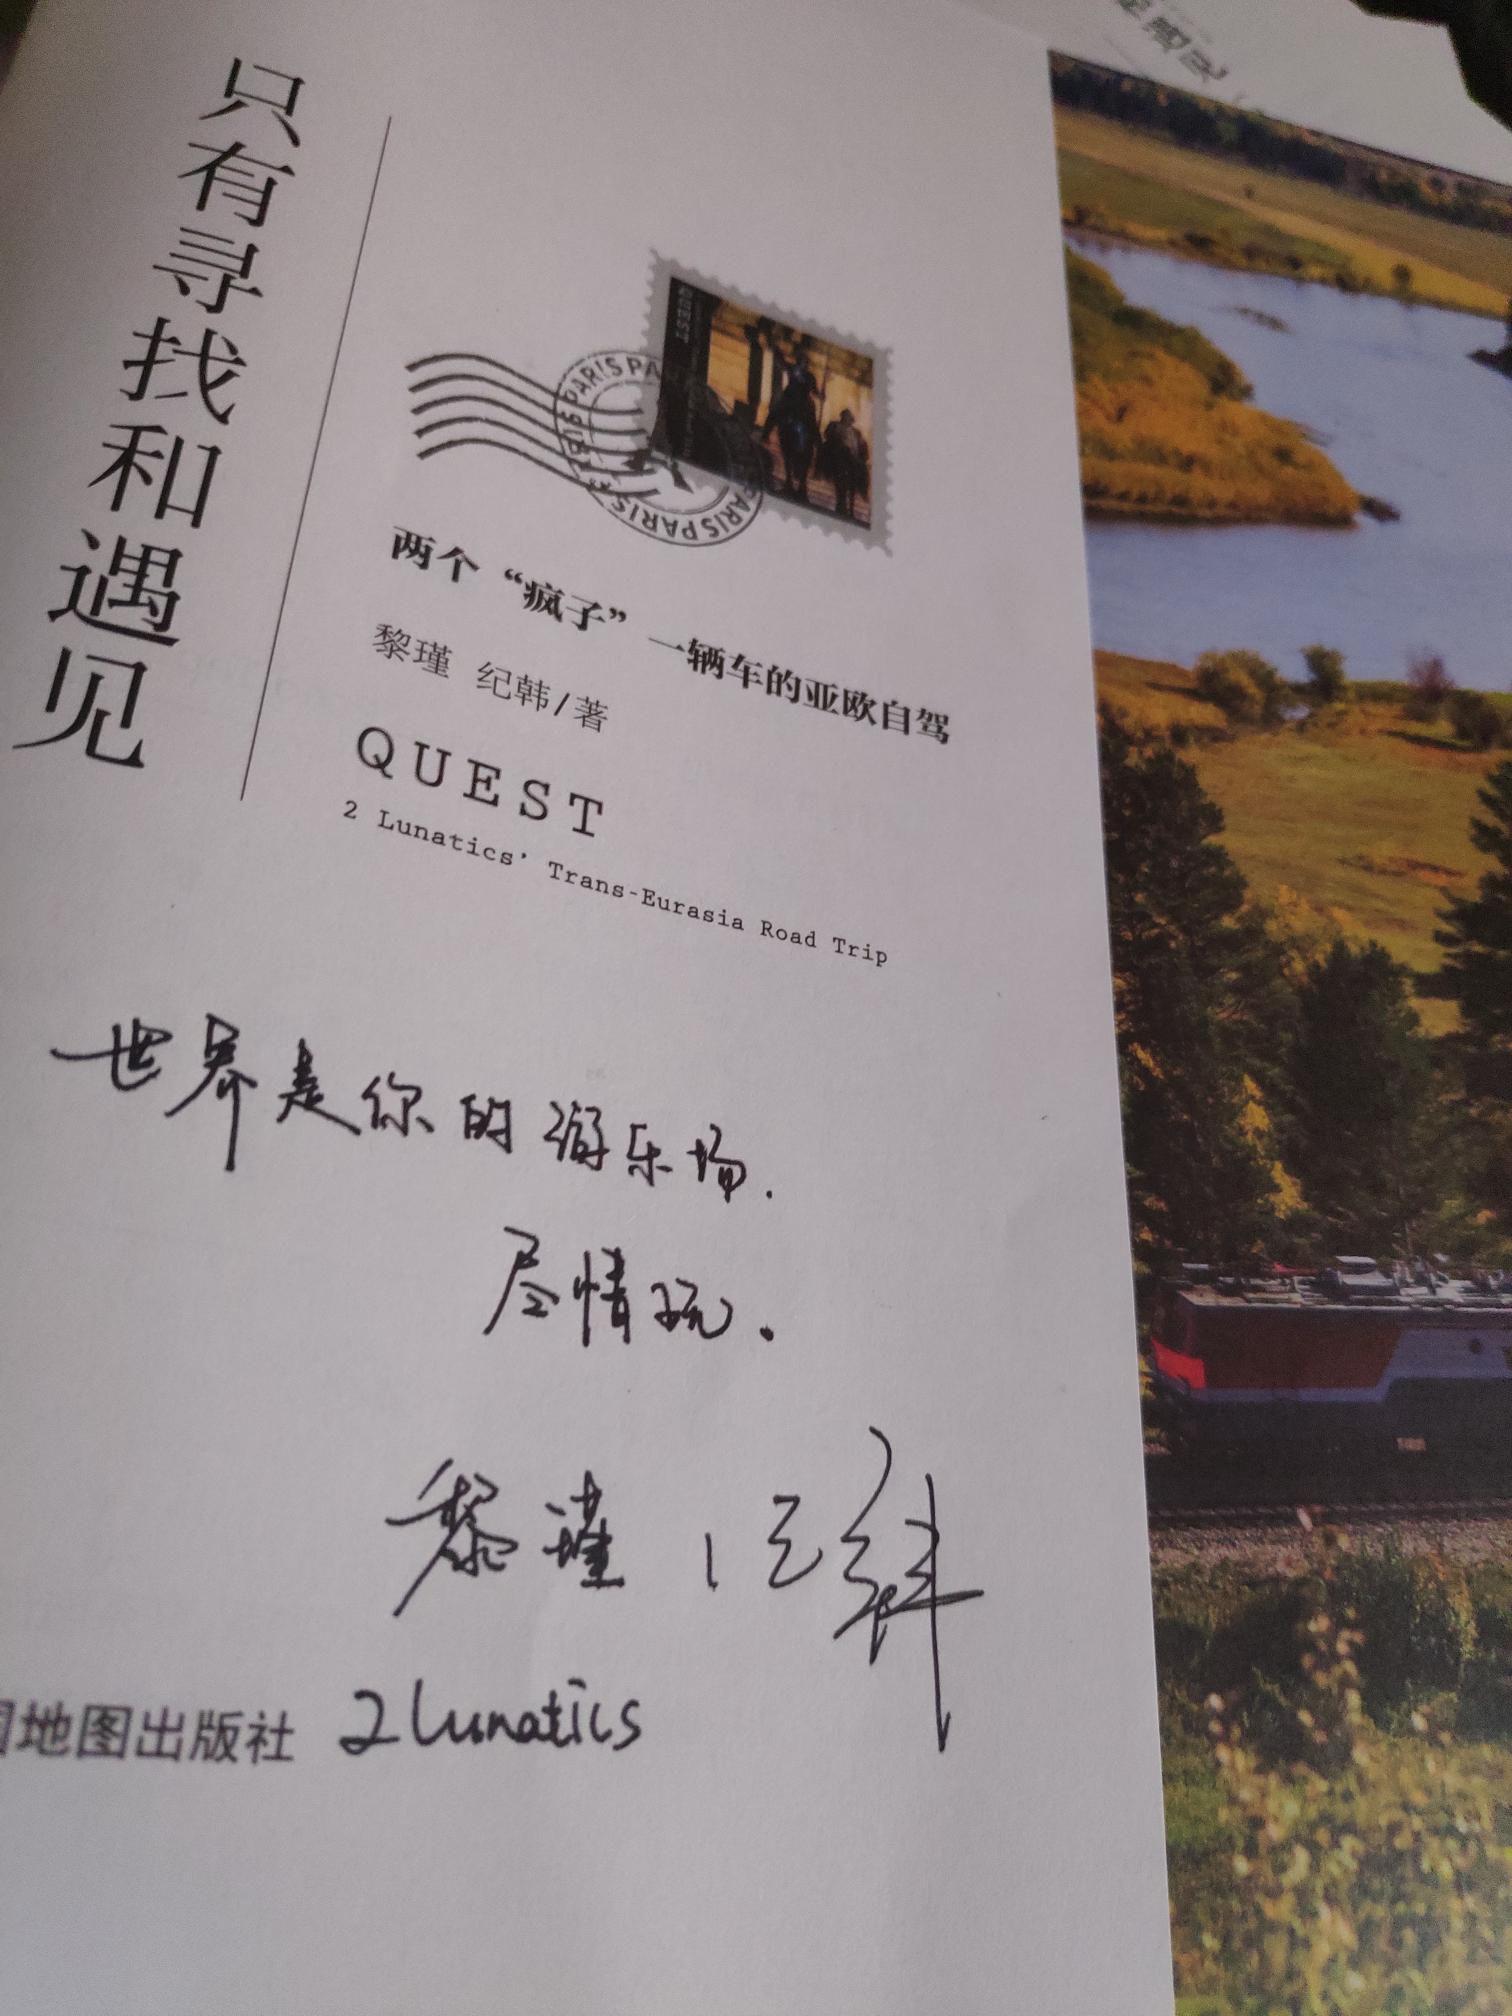 只有寻找和遇见
QUEST
PARIS PARIS PARIS PARIS
两个“疯子”一辆车的亚欧自驾
黎瑾 纪韩/著
QUEST
2 Lunatics' Trans-Eurasia Road Trip
世界是你的游乐场.
尽情玩.
黎瑾 纪韩
地图出版社
2 Lunatics